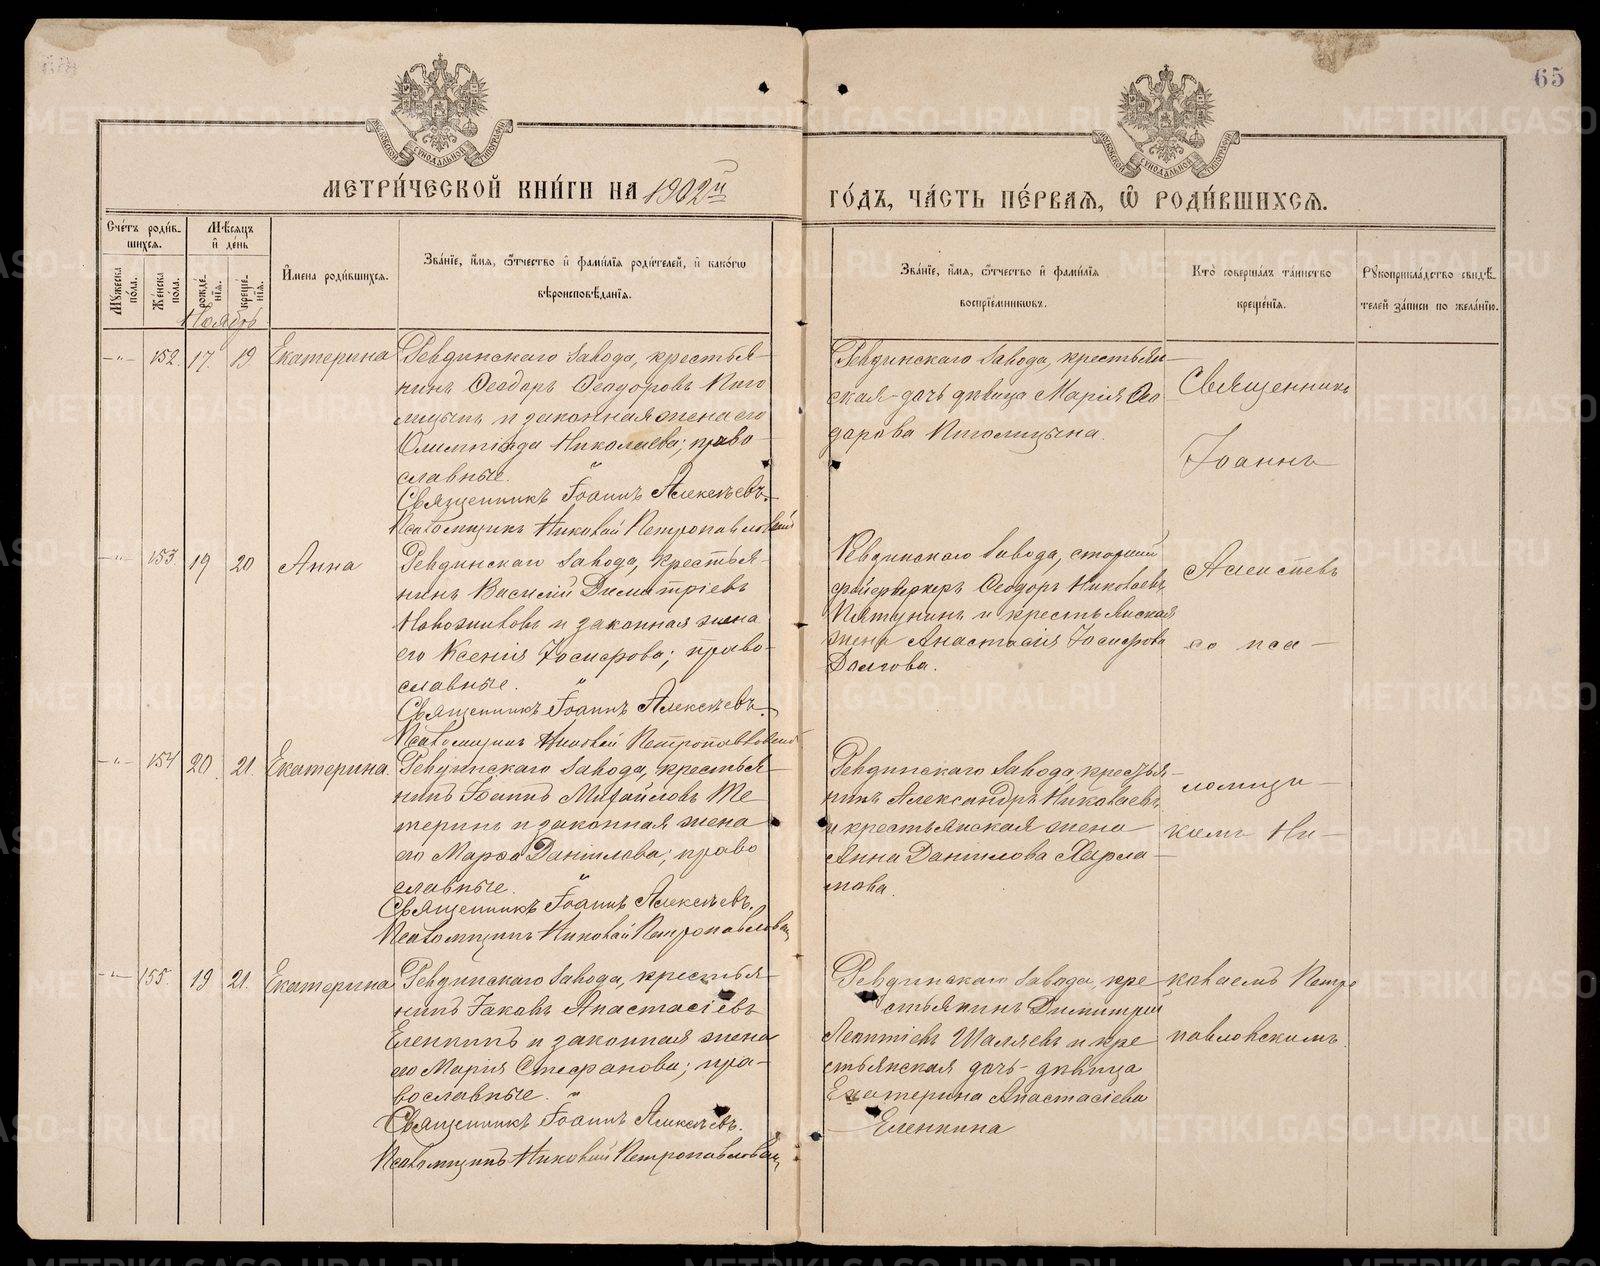 65
МЕТРИ́ЧЕСКОЙ КНИ́ГИ НА 1902й
ГО́ДЪ, ЧА́СТЬ ПЕ́РВАѦ, Ѽ РОДИ́ВШИХСѦ.
Сче́тъ роди́в-
шихсѧ.
Мѣ́сѧцъ
и҆ де́нь
Мꙋ́жеска по́ла.
Же́нска по́ла.
рожде́-нїѧ.
креще́-нїѧ.
И҆мена̀ роди́вшихсѧ.
Зва́нїе, и҆́мѧ, ѻ҆́тчество и҆ фами́лїѧ роди́телей, и҆ како́гѡ
вѣроисповѣ́данїѧ.
Зва́нїе, и҆́мѧ, ѻ҆́тчество и҆ фами́лїѧ
воспрїе́мникѡвъ.
Кто̀ соверша́лъ та́инство
креще́нїѧ.
Рꙋкоприкла́дство свидѣ́-
телей за́писи по жела́нїю.
Ноябрь
-"- 152. 17. 19 Екатерина
Ревдинскаго Завода, крестья-
нинъ Ѳеодоръ Ѳеодоровъ Пиго
лицынъ и законная жена его
Олимпіада Николаева; право-
славные.
Священникъ Іоаннъ Алексѣевъ.
Псаломщикъ Николай Петропавловскій
Ревдинскаго Завода, крестьян-
ская-дочь дѣвица Марія Ѳео
дорова Пиголицына.
Священникъ
Іоаннъ
-"- 153. 19 20 Анна
Ревдинскаго Завода, крестья-
нинъ Василій Димитріевъ
Новожиловъ и законная жена
его Ксенія Іосифова; право-
славные.
Священникъ Іоаннъ Алексѣевъ.
Псаломщикъ Николай Петропавловскій
Ревдинскаго Завода, старшій
фейерверкеръ Ѳеодоръ Николаевъ
Пятунинъ и крестьянская
жена Анастасія Іосифова
Долгова.
Алексѣевъ
со пса-
-"- 154 20. 21. Екатерина.
Ревдинскаго Завода, крестья-
нинъ Іоаннъ Михайловъ Те-
теринъ и законная жена
его Марѳа Даніилова; право
славные.
Священникъ Іоаннъ Алексѣевъ.
Псаломщикъ Николай Петропавловскій
Ревдинскаго Завода, крестья-
нинъ Александръ Николаевъ
и крестьянская жена
Анна Даніилова Харла-
мова.
ломщи-
комъ Ни-
-"- 155. 19 21. Екатерина
Ревдинскаго Завода, крестья-
нинъ Іаковъ Анастасіевъ
Еленкинъ и законная жена
его Марія Стефанова; пра-
вославные.
Священникъ Іоаннъ Алексѣевъ.
Псаломщикъ Николай Петропавловскій
Ревдинскаго Завода, кре
стьянинъ Димитрій
Леонтіевъ Шаляевъ и кре
стьянская дочь-дѣвица
Екатерина Анастасіева
Еленкина
колаемъ Петро
павловскимъ.